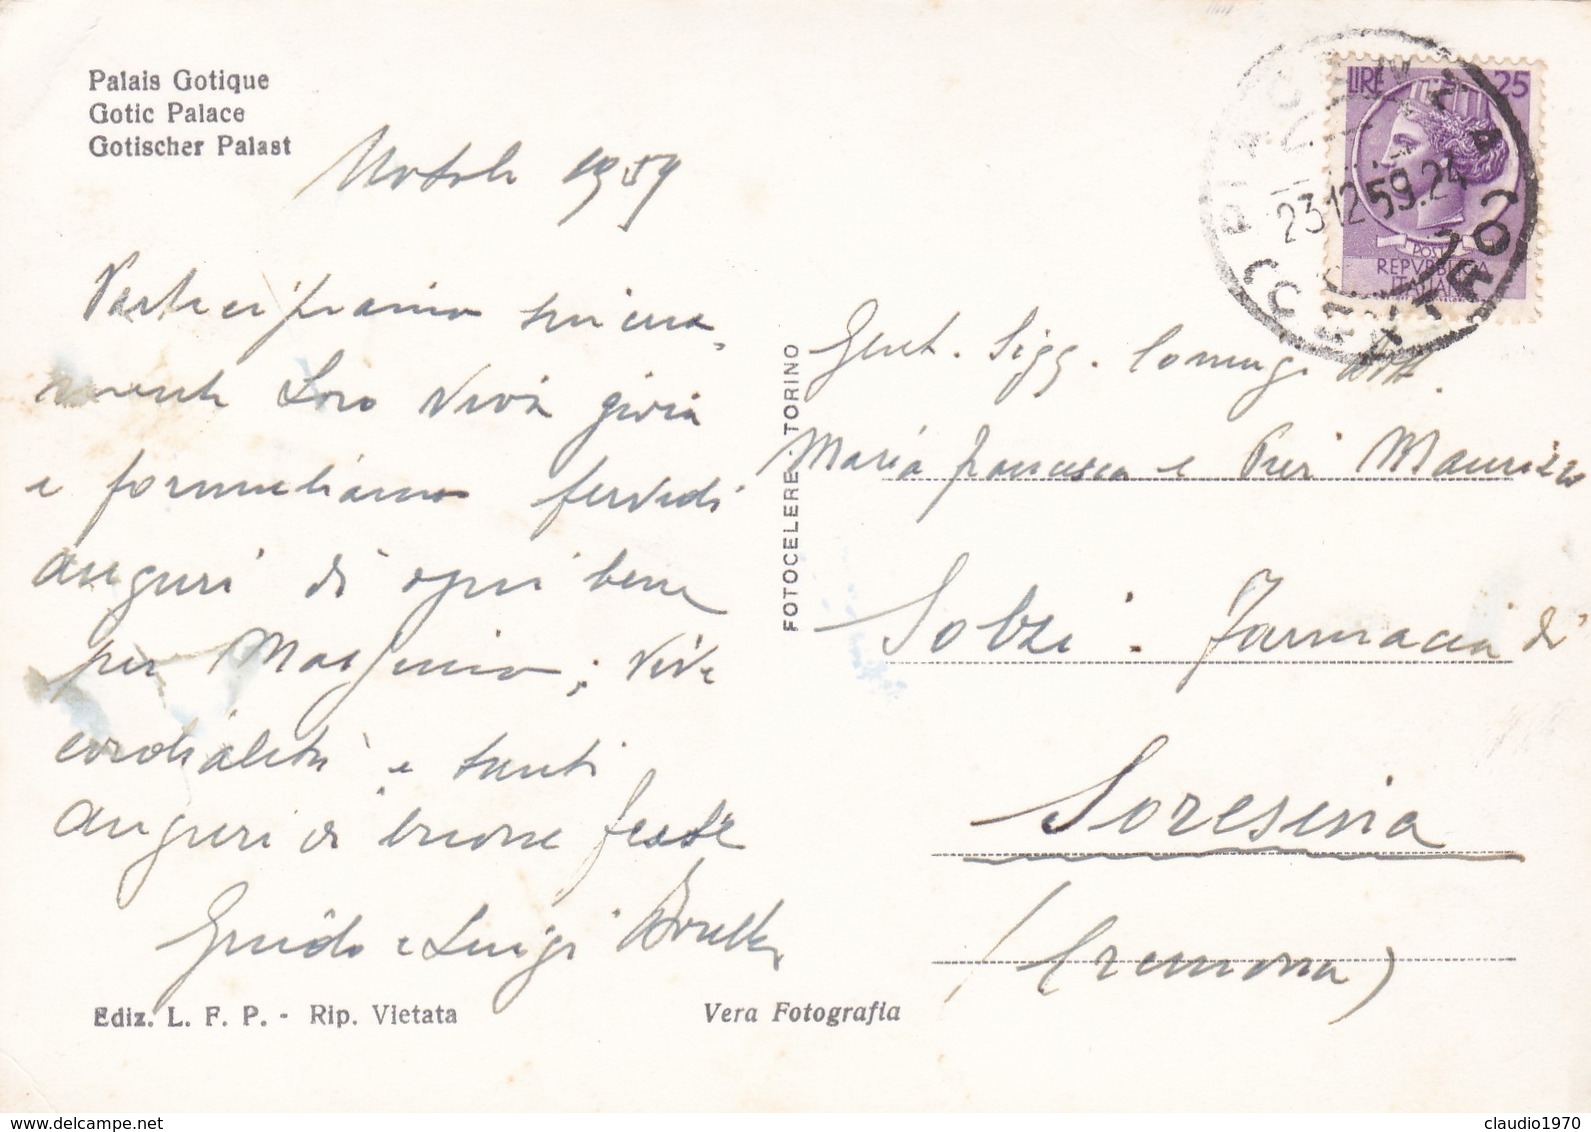 Palais Gotique
Gotic Palace
Gotischer Palast
Natale 1959
Partecipiamo sincera
mente Loro viva gioia
e formuliamo fervidi
auguri di ogni bene
per ; vive
cordialità e tanti
auguri di buone feste
Guido e Luigi
Ediz. L. F. P. - Rip. Vietata
Vera Fotografia
FOTOCELERE - TORINO
LIRE 25
POSTE
REPVBBLICA
ITALIANA
PIACENZA
23.12.59.24
Gent. Sigg. Coniugi dott.
Maria Francesca e Pier Maurizio
Solzi - Farmacia di
Soresina
(Cremona)
www.delcampe.net
claudio1970